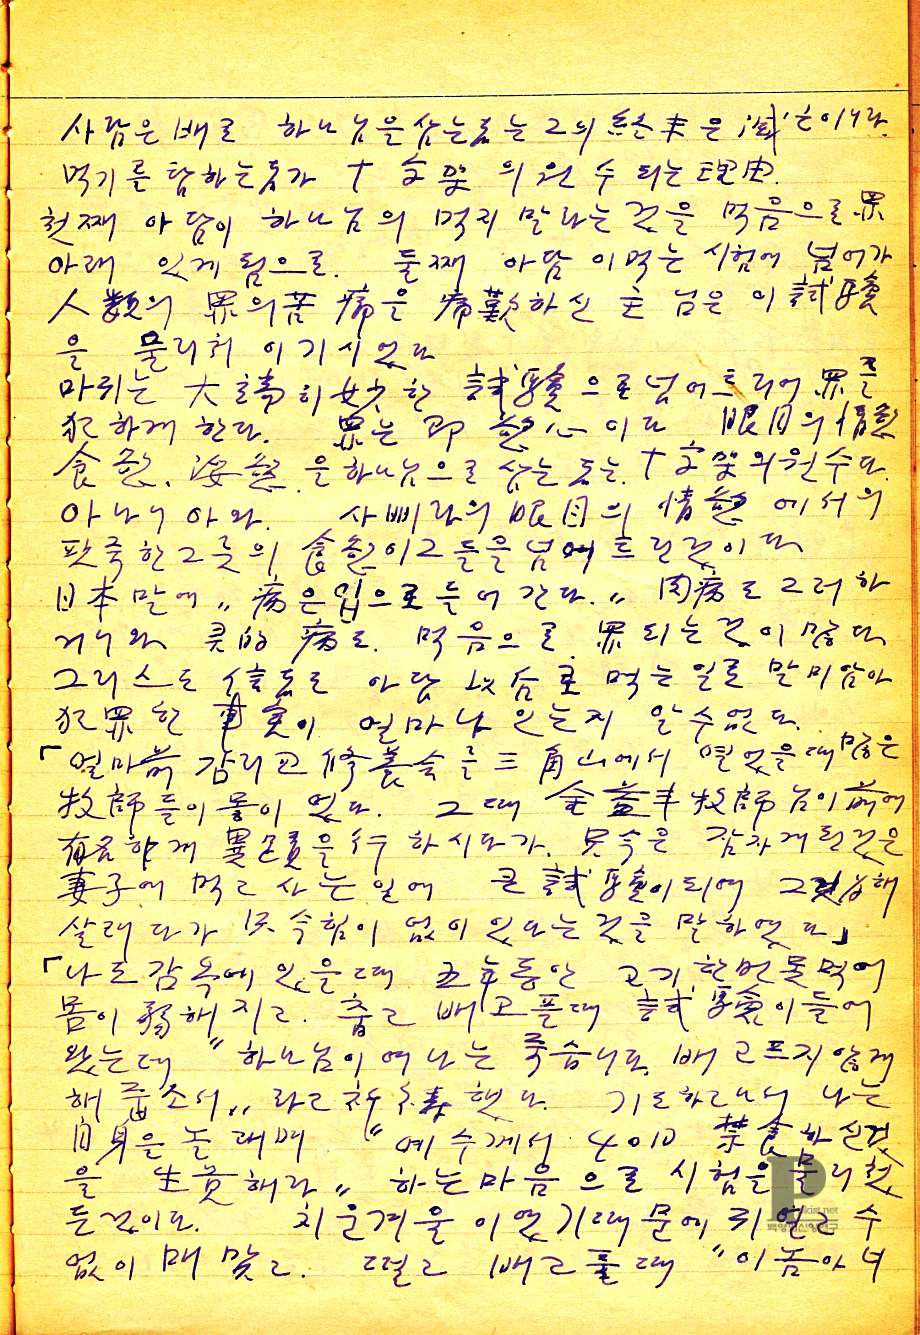 사람은 배로 하나님을 삼는 者는 그의 終末은 滅亡이니라.
먹기를 탐하는 者가 十字架의 원수 되는 理由.
첫째 아담이 하나님의 먹지 말라는 것을 먹음으로 罪
아래 있게 됨으로. 둘째 아담이 먹는 시험에 넘어가
人類의 罪의 苦痛을 痛歎하신 主님은 이 試驗
을 물리쳐 이기시었다
마귀는 大端히 妙한 試驗으로 넘어트리여 罪를
犯하게 한다. 罪는 即 慾心이다 眼目의 情慾
食慾, 淫慾을 하나님으로 삼는 者는 十字架의 원수다.
아나니아와. 사삐라의 眼目의 情慾 에서의
팟죽 한 그릇의 食慾이 그들을 넘어트린 것이다
日本말에 〃病은 입으로 들어간다.〃 肉病도 그러하
거니와 灵的 病도. 먹음으로 罪되는 것이 많다
그리스도 信者도 아담 以后로 먹는 일로 말미암아
犯罪한 事実이 얼마나 있는지 알 수 없다.
「얼마前 감리교 修養会를 三角山에서 열었을 때 많은
牧師들이 몰이었다. 그때 金益斗 牧師님이 前에
有名하게 異蹟을 行하시다가. 灵力은 잠자게 된 것은
妻子에 먹고 사는 일에 큰 試驗이 되여
살래다가 힘이 없이 있다는 것을 말하였다」
「나도 감옥에 있을 때 五年 동안 고기 한번 못 먹어
몸이 弱해지고. 춥고 배고플 때 試驗이 들어
왔는데 〃하나님이여 나는 죽습니다. 배고프지 않게
해 줍소서〃 라고 祈禱했다. 기도하면서 나는
自身을 놀래며 〃예수께서 40日 禁食하신 것
을 生覚해라〃 하는 마음으로 시험을 물리쳤
든 것이다. 치운 겨울이었기 때문에 귀 얼고 수
없이 매 맞고. 떨고 배고플 때 〃이놈아 너
P
kist.net